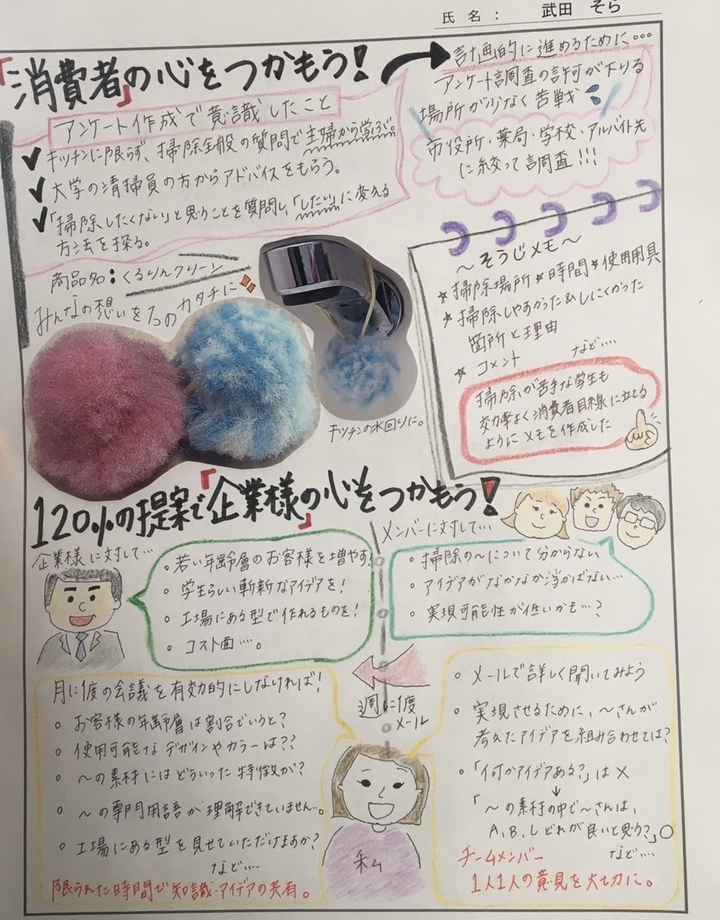 氏名： 武田 そら
「消費者」の心をつかもう！
計画的に進めるために…
アンケート調査の許可が下りる
場所が少なく苦戦
市役所・薬局・学校・アルバイト先
に絞って調査!!!
アンケート作成で意識したこと
✓キッチンに限らず、掃除全般の質問で主婦から学ぶ。
✓大学の清掃員の方からアドバイスをもらう。
✓「掃除したくない」と思うことを質問し、「したい」に変える
方法を探る。
商品名：くるりんクリーン
みんなの想いを1つのカタチに
キッチンの水回りに。
〜そうじメモ〜
★掃除場所★時間★使用用具
★掃除しやすかった&しにくかった
箇所と理由
★コメント など….
掃除が苦手な学生も
効率よく消費者目線に立てる
ようにメモを作成した
120%の提案で「企業様」の心をつかもう！
企業様に対して…
・若い年齢層のお客様を増やす!
・学生らしい斬新なアイデアを！
・工場にある型で作れるものを！
・コスト面….。
メンバーに対して…
・掃除の〜について分からない
・アイデアがなかなか浮かばない…
・実現可能性が低いかも…？
月に1度の会議を有効的にしなければ！
・お客様の年齢層は割合でいうと？
・使用可能なデザインやカラーは??
・〜の素材にはどういった特徴が？
・〜の専門用語が理解できていません…。
・工場にある型を見せていただけますか？
など….
限られた時間で知識・アイデアの共有。
週に1度
メール
私
・メールで詳しく聞いてみよう
・実現させるために、〜さんが
考えたアイデアを組み合わせては？
・「何かアイデアある？」は×
↓
「〜の素材の中で〜さんは、
A、B、Cどれが良いと思う？」○
など….
チームメンバー
1人1人の意見を大切に。